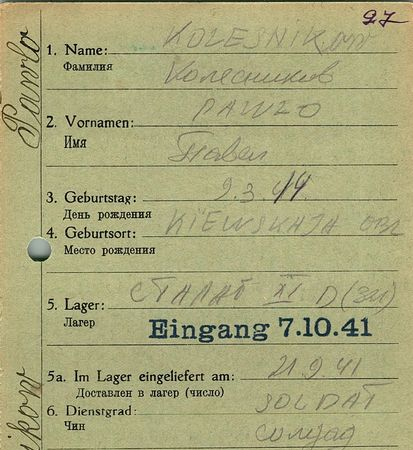 97
1. Name: KOLESNIKOW
Фамилия Колесников
PAWLO
2. Vornamen:
Имя Павел
3. Geburtstag: 9.3.
День рождения
4. Geburtsort: KIEWSKAJA OBL
Место рождения
5. Lager: СТАЛАГ XI D (321)
Лагер
Eingang 7.10.41
5a. Im Lager eingeliefert am: 21.9.41
Доставлен в лагер (число)
6. Dienstgrad: SOLDAT
Чин солдат
Pawlo
ikow